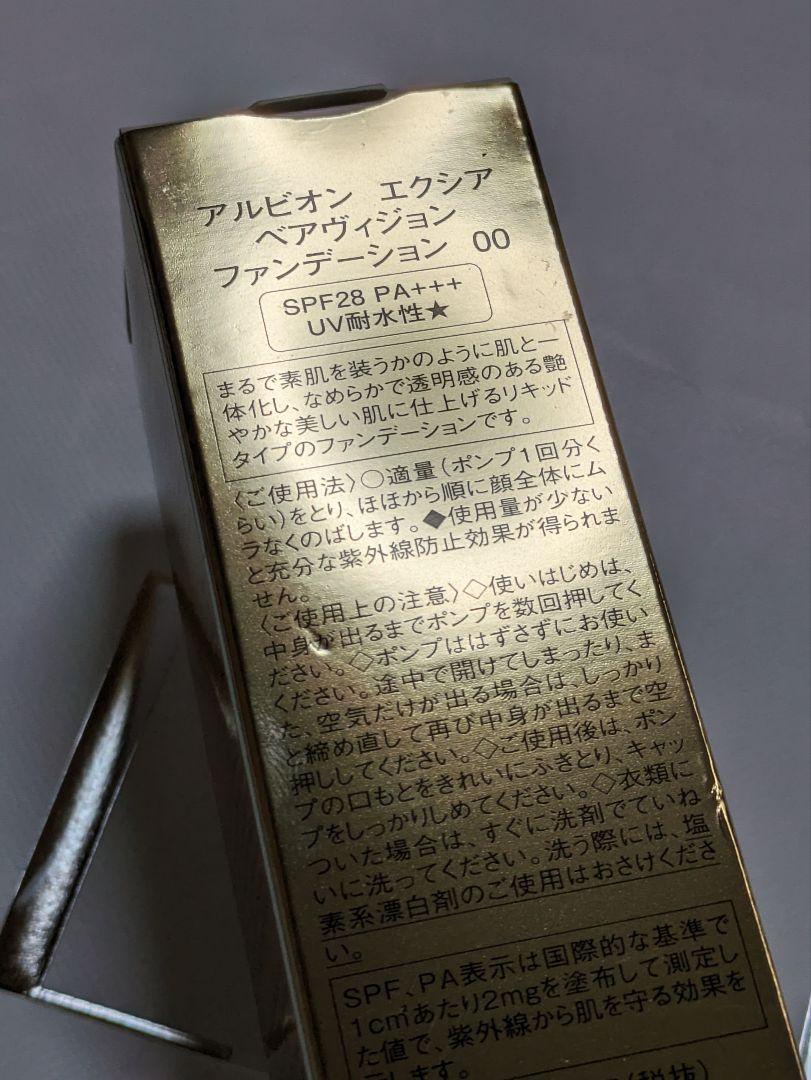 アルビオン エクシア
ベアヴィジョン
ファンデーション 00
SPF28 PA+++
UV耐水性★
まるで素肌を装うかのように肌と一
体化し、なめらかで透明感のある艶
やかな美しい肌に仕上げるリキッド
タイプのファンデーションです。
〈ご使用法〉○適量(ポンプ1回分く
らい)をとり、ほほから順に顔全体にム
ラなくのばします。◆使用量が少ない
と充分な紫外線防止効果が得られま
せん。
〈ご使用上の注意〉◇使いはじめは、
中身が出るまでポンプを数回押してく
ださい。◇ポンプははずさずにお使い
ください。途中で開けてしまったり、ま
た、空気だけが出る場合は、しっかり
と締め直して再び中身が出るまで空
押ししてください。◇ご使用後は、ポン
プの口もとをきれいにふきとり、キャッ
プをしっかりしめてください。◇衣類に
ついた場合は、すぐに洗剤でていね
いに洗ってください。洗う際には、塩
素系漂白剤のご使用はおさけくださ
い。
SPF、PA表示は国際的な基準で
1c㎡あたり2mgを塗布して測定し
た値で、紫外線から肌を守る効果を
示します。
(税抜)